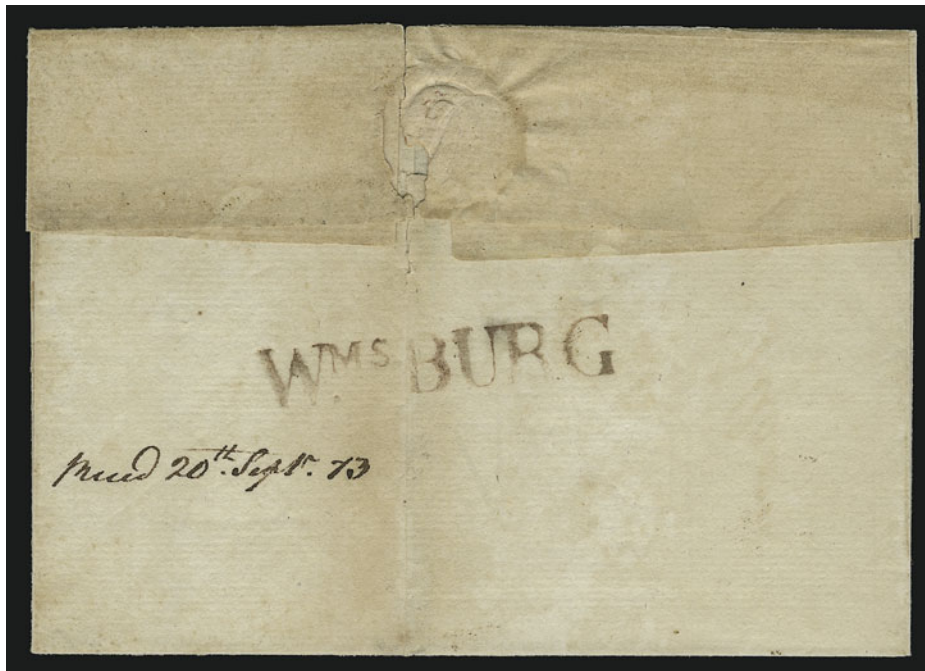 WMS BURG
Recd 20th. Septr. 73